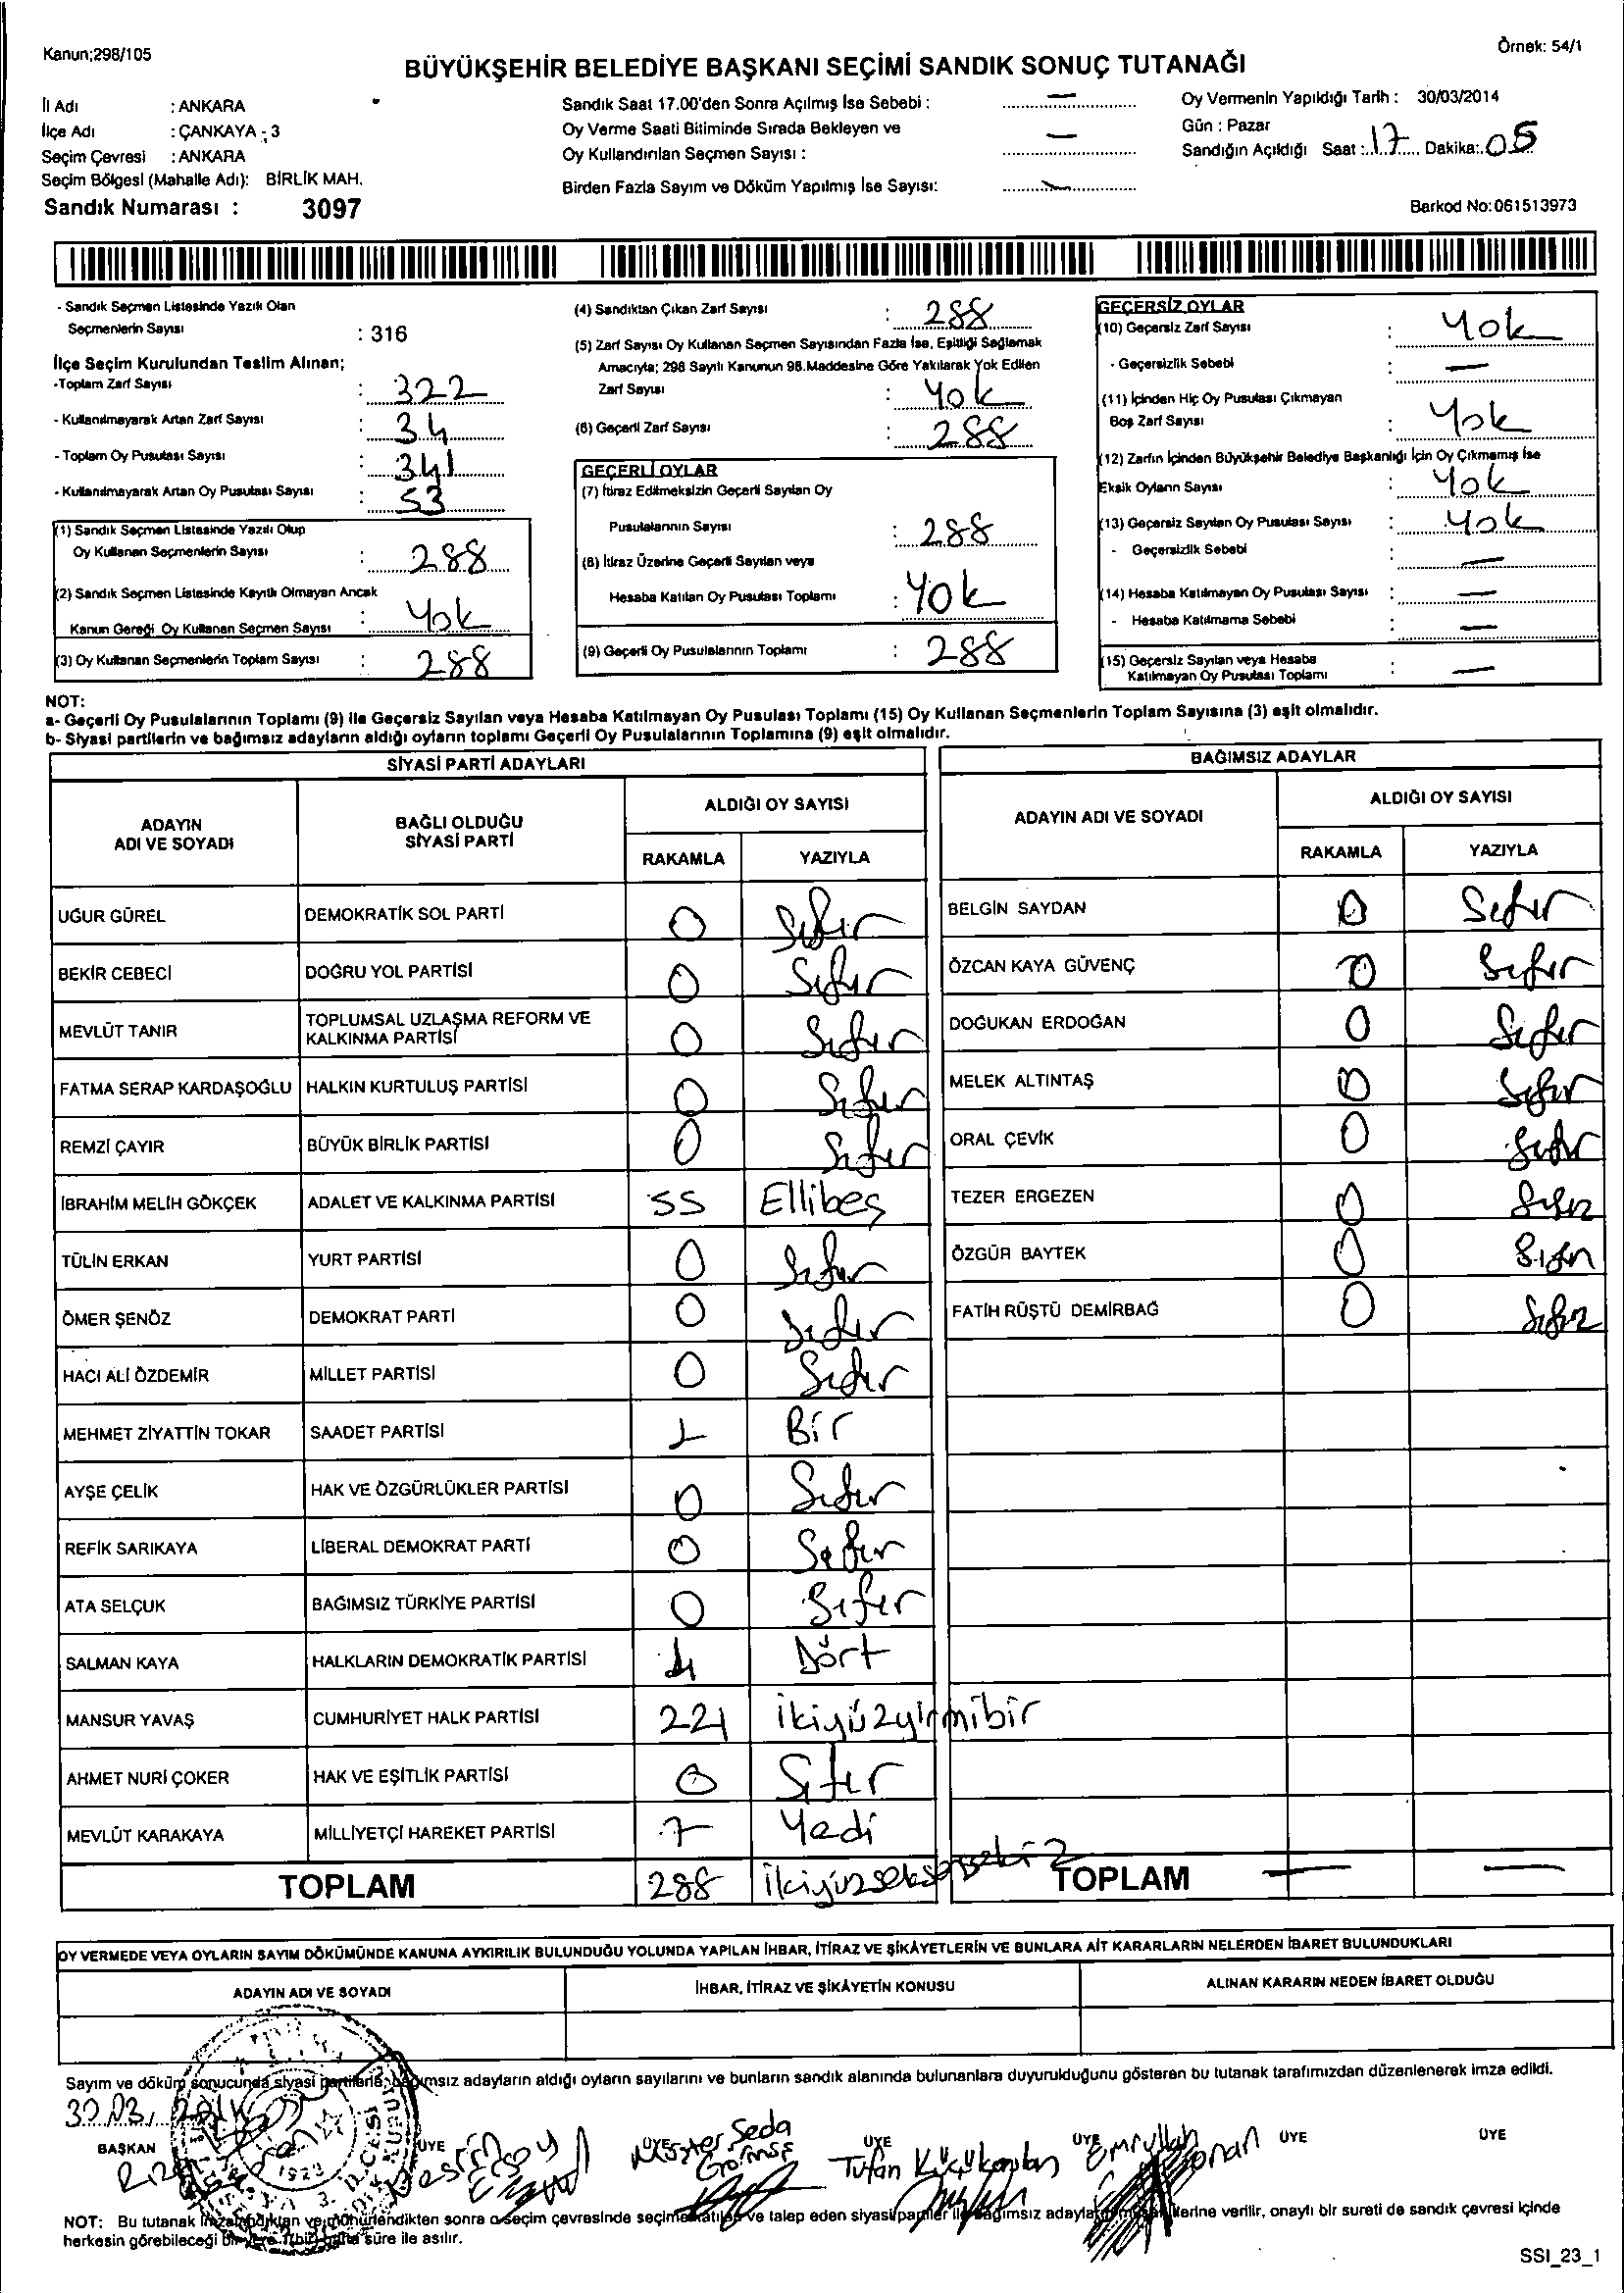 Kanun;298/105
Örnek: 54/1
BÜYÜKŞEHİR BELEDİYE BAŞKANI SEÇİMİ SANDIK SONUÇ TUTANAĞI
İl Adı : ANKARA
İlçe Adı : ÇANKAYA - 3
Seçim Çevresi : ANKARA
Seçim Bölgesi (Mahalle Adı): BİRLİK MAH.
Sandık Numarası : 3097
Sandık Saat 17.00'den Sonra Açılmış İse Sebebi : —
Oy Verme Saati Bitiminde Sırada Bekleyen ve
Oy Kullandırılan Seçmen Sayısı : —
Birden Fazla Sayım ve Döküm Yapılmış İse Sayısı: —
Oy Vermenin Yapıldığı Tarih : 30/03/2014
Gün : Pazar
Sandığın Açıldığı Saat : 17 Dakika: 05
Barkod No:061513973
- Sandık Seçmen Listesinde Yazılı Olan
Seçmenlerin Sayısı : 316
İlçe Seçim Kurulundan Teslim Alınan;
-Toplam Zarf Sayısı : 322
- Kullanılmayarak Artan Zarf Sayısı : 34
- Toplam Oy Pusulası Sayısı : 341
- Kullanılmayarak Artan Oy Pusulası Sayısı : 53
(1) Sandık Seçmen Listesinde Yazılı Olup
Oy Kullanan Seçmenlerin Sayısı : 288
(2) Sandık Seçmen Listesinde Kayıtlı Olmayan Ancak
Kanun Gereği Oy Kullanan Seçmen Sayısı : Yok
(3) Oy Kullanan Seçmenlerin Toplam Sayısı : 288
(4) Sandıktan Çıkan Zarf Sayısı : 288
(5) Zarf Sayısı Oy Kullanan Seçmen Sayısından Fazla İse, Eşitliği Sağlamak
Amacıyla; 298 Sayılı Kanunun 98.Maddesine Göre Yakılarak Yok Edilen
Zarf Sayısı : Yok
(6) Geçerli Zarf Sayısı : 288
GEÇERLİ OYLAR
(7) İtiraz Edilmeksizin Geçerli Sayılan Oy
Pusulalarının Sayısı : 288
(8) İtiraz Üzerine Geçerli Sayılan veya
Hesaba Katılan Oy Pusulası Toplamı : Yok
(9) Geçerli Oy Pusulalarının Toplamı : 288
GEÇERSİZ OYLAR
(10) Geçersiz Zarf Sayısı : Yok
- Geçersizlik Sebebi : —
(11) İçinden Hiç Oy Pusulası Çıkmayan
Boş Zarf Sayısı : Yok
(12) Zarfın İçinden Büyükşehir Belediye Başkanlığı İçin Oy Çıkmamış İse
Eksik Oyların Sayısı : Yok
(13) Geçersiz Sayılan Oy Pusulası Sayısı : Yok
- Geçersizlik Sebebi : —
(14) Hesaba Katılmayan Oy Pusulası Sayısı : —
- Hesaba Katılmama Sebebi : —
(15) Geçersiz Sayılan veya Hesaba
Katılmayan Oy Pusulası Toplamı : —
NOT:
a- Geçerli Oy Pusulalarının Toplamı (9) ile Geçersiz Sayılan veya Hesaba Katılmayan Oy Pusulası Toplamı (15) Oy Kullanan Seçmenlerin Toplam Sayısına (3) eşit olmalıdır.
b- Siyasi partilerin ve bağımsız adayların aldığı oyların toplamı Geçerli Oy Pusulalarının Toplamına (9) eşit olmalıdır.
SİYASİ PARTİ ADAYLARI
ADAYIN ADI VE SOYADI BAĞLI OLDUĞU SİYASİ PARTİ ALDIĞI OY SAYISI
RAKAMLA YAZIYLA
UĞUR GÜREL DEMOKRATİK SOL PARTİ 0 Sıfır
BEKİR CEBECİ DOĞRU YOL PARTİSİ 0 Sıfır
MEVLÜT TANIR TOPLUMSAL UZLAŞMA REFORM VE KALKINMA PARTİSİ 0 Sıfır
FATMA SERAP KARDAŞOĞLU HALKIN KURTULUŞ PARTİSİ 0 Sıfır
REMZİ ÇAYIR BÜYÜK BİRLİK PARTİSİ 0 Sıfır
İBRAHİM MELİH GÖKÇEK ADALET VE KALKINMA PARTİSİ 55 Ellibeş
TÜLİN ERKAN YURT PARTİSİ 0 Sıfır
ÖMER ŞENÖZ DEMOKRAT PARTİ 0 Sıfır
HACI ALİ ÖZDEMİR MİLLET PARTİSİ 0 Sıfır
MEHMET ZİYATTİN TOKAR SAADET PARTİSİ 1 Bir
AYŞE ÇELİK HAK VE ÖZGÜRLÜKLER PARTİSİ 0 Sıfır
REFİK SARIKAYA LİBERAL DEMOKRAT PARTİ 0 Sıfır
ATA SELÇUK BAĞIMSIZ TÜRKİYE PARTİSİ 0 Sıfır
SALMAN KAYA HALKLARIN DEMOKRATİK PARTİSİ 4 Dört
MANSUR YAVAŞ CUMHURİYET HALK PARTİSİ 221 ikiyüzyirmibir
AHMET NURİ ÇOKER HAK VE EŞİTLİK PARTİSİ 0 Sıfır
MEVLÜT KARAKAYA MİLLİYETÇİ HAREKET PARTİSİ 7 Yedi
TOPLAM 288 ikiyüzseksensekiz
BAĞIMSIZ ADAYLAR
ADAYIN ADI VE SOYADI ALDIĞI OY SAYISI
RAKAMLA YAZIYLA
BELGİN SAYDAN 0 Sıfır
ÖZCAN KAYA GÜVENÇ 0 Sıfır
DOĞUKAN ERDOĞAN 0 Sıfır
MELEK ALTINTAŞ 0 Sıfır
ORAL ÇEVİK 0 Sıfır
TEZER ERGEZEN 0 Sıfır
ÖZGÜR BAYTEK 0 Sıfır
FATİH RÜŞTÜ DEMİRBAĞ 0 Sıfır
TOPLAM — —
OY VERMEDE VEYA OYLARIN SAYIM DÖKÜMÜNDE KANUNA AYKIRILIK BULUNDUĞU YOLUNDA YAPILAN İHBAR, İTİRAZ VE ŞİKÂYETLERİN VE BUNLARA AİT KARARLARIN NELERDEN İBARET BULUNDUKLARI
ADAYIN ADI VE SOYADI İHBAR, İTİRAZ VE ŞİKÂYETİN KONUSU ALINAN KARARIN NEDEN İBARET OLDUĞU
Sayım ve döküm sonucunda siyasi partilerle, bağımsız adayların aldığı oyların sayılarını ve bunların sandık alanında bulunanlara duyurulduğunu gösteren bu tutanak tarafımızdan düzenlenerek imza edildi.
30.03.2014
BAŞKAN ÜYE ÜYE ÜYE ÜYE ÜYE ÜYE
Seda
Tufan Küçükkaplan
Emrullah
1923
NOT: Bu tutanak imzalandıktan ve mühürlendikten sonra o seçim çevresinde seçime katılan ve talep eden siyasi partiler ile bağımsız adayların müşahitlerine verilir, onaylı bir sureti de sandık çevresi içinde
herkesin görebileceği bir yere 1 (bir) hafta süre ile asılır.
SSI_23_1